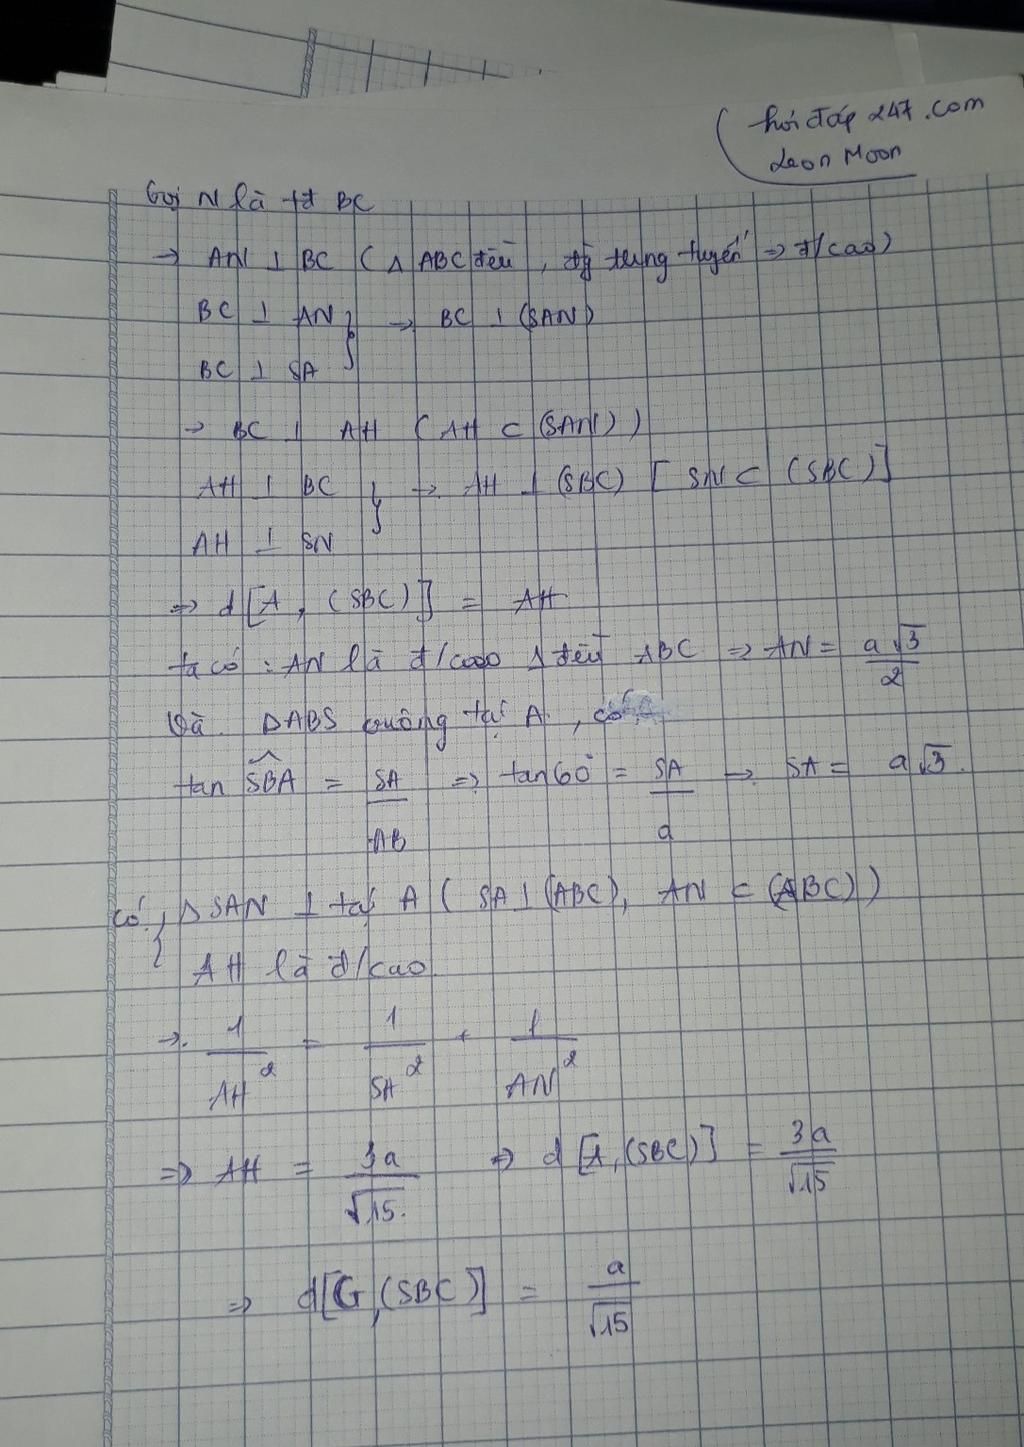 hỏi đáp 247.com
Leon Moon
Gọi N là tđ BC
→ AN ⊥ BC (Δ ABC đều, đg trung tuyến => đ/cao)
BC ⊥ AN } → BC ⊥ (SAN)
BC ⊥ SA
→ BC ⊥ AH (AH ⊂ (SAN))
AH ⊥ BC } → AH ⊥ (SBC) [SN ⊂ (SBC)]
AH ⊥ SN
=> d[A, (SBC)] = AH
ta có: AN là đ/cao Δ đều ABC => AN = a√3/2
Và ΔABS vuông tại A, có
tan SBA = SA/AB => tan60° = SA/a → SA = a√3.
có { ΔSAN ⊥ tại A (SA ⊥ (ABC), AN ⊂ (ABC))
AH là đ/cao
→ 1/AH² = 1/SA² + 1/AN²
=> AH = 3a/√15. => d[A,(SBC)] = 3a/√15
=> d[G,(SBC)] = a/√15